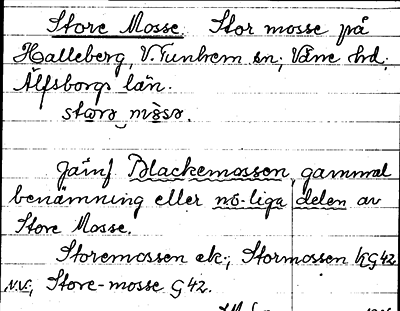 Store Mosse. Stor mosse på
Halleberg, V. Tunhem sn, Väne hd,
Älfsborgs län.
Jämf Blackemossen, gammal
benämning eller nö-liga delen av
Store Mosse.
Storemossen ek.; Stormossen G42
NV; Store-mosse G42.